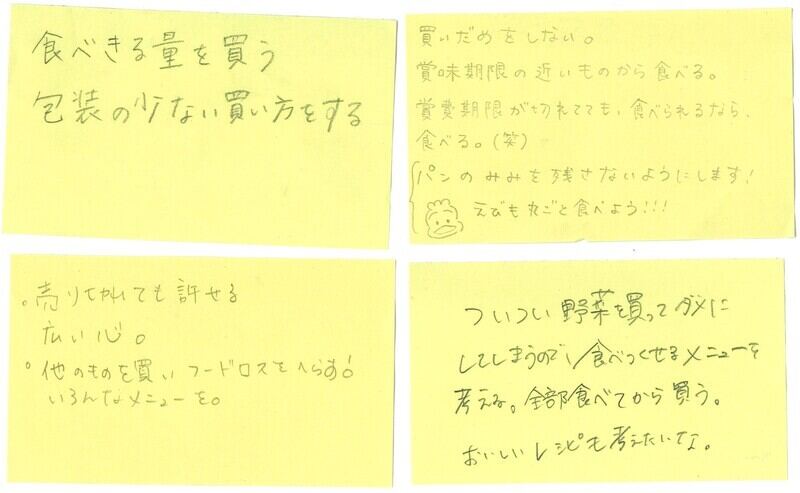 食べきる量を買う
包装の少ない買い方をする
買いだめをしない。
賞味期限の近いものから食べる。
賞費期限が切れてても、食べられるなら、
食べる。(笑)
パンのみみを残さないようにします!
えびも丸ごと食べよう!!!
。売りきれても許せる
広い心。
。他のものを買いフードロスをへらす。
いろんなメニューを。
ついつい野菜を買ってダメに
してしまうので、食べつくせるメニューを
考える。全部食べてから買う。
おいしいレシピも考えたいな。